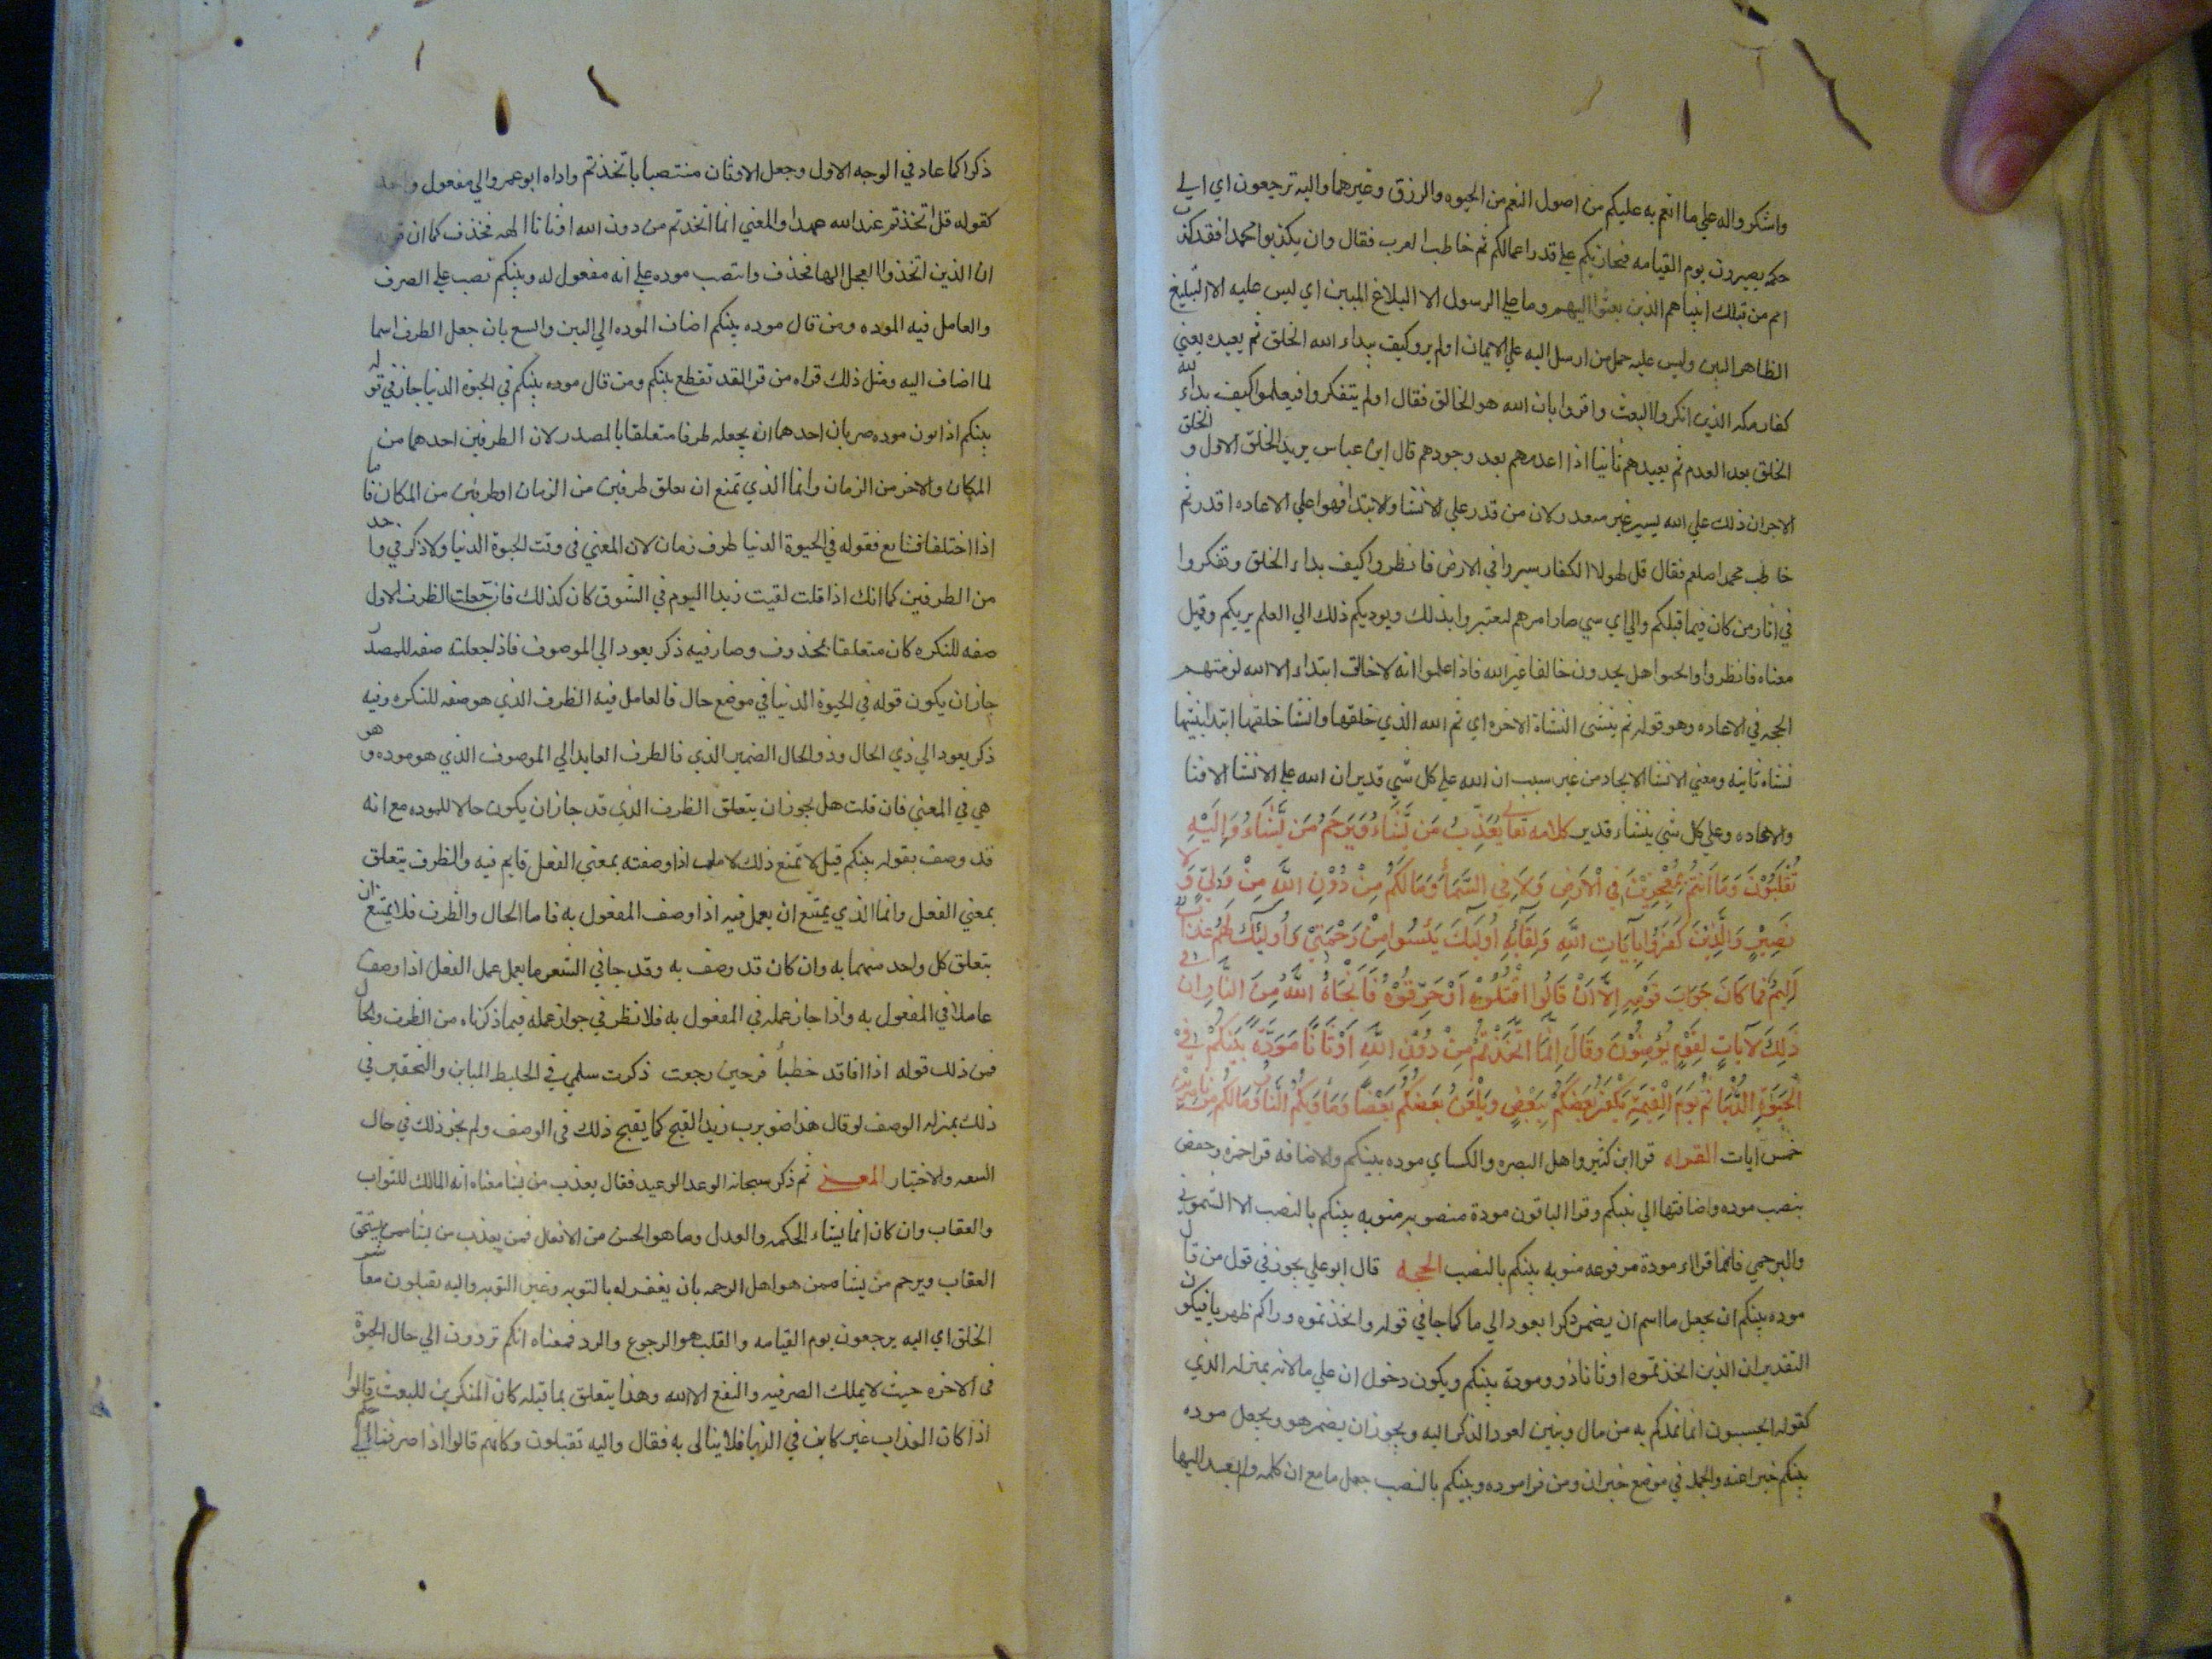 واشكرواله علي ما انعم به عليكم من اصول النعم من الحيوه والرزق وغيرهما واليه ترجعون اي الي
حكمه يصيرون يوم القيامه فيجازيكم علي قدر اعمالكم ثم خاطب العرب فقال وان يكذبوا محمدا فقد كذب
امم من قبلك انبياهم الذين بعثوا اليهم وما علي الرسول الا البلاغ المبين اي ليس عليه الا التبليغ
الظاهر البين وليس عليه حمل من ارسل اليه علي الايمان اولم يرو كيف يبداء الله الخلق ثم يعيده يعني
كفار مكه الذين انكروا البعث واقروا بان الله هو الخالق فقال اولم يتفكروا فيعلموا كيف بداء الله
الخلق بعد العدم ثم يعيدهم ثانيا اذا اعدمهم بعد وجودهم قال ابن عباس يريد الخلق الاول و الخلق
الاخر ان ذلك علي الله يسير غير متعذر لان من قدر علي الانشا والابتدا فهو علي الاعاده اقدر ثم
خاطب محمدا صلعم فقال قل لهولا الكفار سيروا في الارض فانظروا كيف بداء الخلق وتفكروا
في اثار من كان فيما قبلكم والي اي سي صار امرهم لتعتبروا بذلك ويوديكم ذلك الي العلم بربكم وقيل
معناه فانظروا وابحثوا هل يجدون خالقا غير الله فاذا علموا انه لا خالق ابتداء الا الله لزمتهم
الحجه في الاعاده وهو قوله ثم ينشى النشاة الاخره اي ثم الله الذي خلقها وانشا خلقها ابتدا ينشيها
نشاه ثانيه ومعني الانشا الايجاد من غير سبب ان الله علي كل شي قدير ان الله علي الانشا الافنا
والاعاده وعلي كل شي يشاء قدير كلامه تعالي يُعَذِّبُ مَن يَّشَاءُ وَيَرْحَمُ مَن يَّشَاءُ وَإِلَيْهِ
تُقْلَبُوْنَ وَمَا اَنْتُمْ بِمُعْجِزِيْنَ فِي الْاَرْضِ وَلَا فِي السَّمَاءِ وَمَا لَكُمْ مِنْ دُوْنِ اللَّهِ مِنْ وَلِيٍّ وَلَا
نَصِيْرٍ وَالَّذِيْنَ كَفَرُوْا بِآيَاتِ اللَّهِ وَلِقَآئِهِ اُولَئِكَ يَئِسُوا مِنْ رَحْمَتِيْ وَاُولَئِكَ لَهُمْ عَذَابٌ
اَلِيْمٌ فَمَا كَانَ جَوَابَ قَوْمِهِ اِلَّا اَنْ قَالُوا اقْتُلُوْهُ اَوْ حَرِّقُوْهُ فَاَنْجَاهُ اللَّهُ مِنَ النَّارِ اِنَّ فِي
ذَلِكَ لَآيَاتٍ لِقَوْمٍ يُؤْمِنُوْنَ وَقَالَ اِنَّمَا اتَّخَذْتُمْ مِنْ دُوْنِ اللَّهِ اَوْثَانًا مَوَدَّةً بَيْنَكُمْ فِيْ
الْحَيٰوةِ الدُّنْيَا ثُمَّ يَوْمَ الْقِيٰمَةِ يَكْفُرُ بَعْضُكُمْ بِبَعْضٍ وَيَلْعَنُ بَعْضُكُمْ بَعْضًا وَمَأْوٰيكُمُ النَّارُ وَمَا لَكُمْ مِنْ نَاصِرِيْنَ
خمس آيات القراه قرا ابن كثير واهل البصره والكساي موده بينكم والاضافه قرا حمزه وحفص
بنصب موده واضافتها الي بينكم وقرا الباقون مودة منصوبه منونه بينكم بالنصب الا الشموني
والبرجمي فانهما قراء مودة مرفوعه منونه بينكم بالنصب الحجه قال ابو علي يجوز في قول من قال
موده بينكم ان يجعل ما اسم ان يضمر ذكرا يعود الي ما كما جا في قوله واتخذتموه وراكم ظهريا فيكون
التقدير ان الذين اتخذتموه اوثانا ذوو مودة بينكم ويكون دخول ان علي ما لانه بمنزله الذي
كقوله ايحسبون انما نمدكم به من مال وبنين لعود الذكر اليه ويجوز ان يضمر هو ويجعل موده
بينكم خبرا عنه والجمله في موضع خبر ان ومن قرا موده وبينكم بالنصب جعل ما مع ان كلمه ولم يعد اليها
ذكرا كما عاد في الوجه الاول وجعل الاوثان منتصبا باتخذتم واداه ابو عمرو الي مفعول واحد
كقوله قل اتخذتم عند الله عهدا والمعني انما اتخذتم من دون الله اوثانا الهه فحذف كما ان قوله
ان الذين اتخذوا العجل الها فحذف وانتصب موده علي انه مفعول له وبينكم نصب علي الصرف
والعامل فيه الموده ومن قال موده بينكم اضاف الموده الي البين واتسع بان جعل الظرف اسما
لما اضاف اليه ومثل ذلك قراه من قرا لقد تقطع بينكم ومن قال موده بينكم في الحيوة الدنيا جاز في قوله
بينكم اذا نون موده ضربان احدهما ان يجعله ظرفا متعلقا بالمصدر لان الظرفين احدهما من
المكان والاخر من الزمان وانما الذي تمنع ان يعلق ظرفين من الزمان او ظرفين من المكان فاما
اذا اختلفا فشايع فقوله في الحيوة الدنيا ظرف زمان لان المعني في وقت الحيوة الدنيا ولا ذكر في واحد
من الظرفين كما انك اذا قلت لقيت زيدا اليوم في السوق كان كذلك فان جعلت الظرف الاول
صفه للنكره كان متعلقا بمحذوف وصار فيه ذكر يعود الي الموصوف فاذا جعلته صفه للمصدر
جاز ان يكون قوله في الحيوة الدنيا في موضع حال فالعامل فيه الظرف الذي هو صفه للنكره وفيه
ذكر يعود الي ذي الحال وذو الحال الضمير الذي في الظرف العايد الي الموصوف الذي هو موده وهو
هي في المعني فان قلت هل يجوز ان يتعلق الظرف الذي قد جاز ان يكون حالا للموده مع انه
قد وصف بقوله بينكم قيل لا تمنع ذلك لانك اذا وصفته بمعني الفعل قايم فيه والظرف يتعلق
بمعني الفعل وانما الذي يمتنع ان يعمل فيه اذا وصف المفعول به فاما الحال والظرف فلا يمتنع ان
يتعلق كل واحد منهما به وان كان قد وصف به وقد جا في الشعر ما يعمل عمل الفعل اذا وصف
عاملا في المفعول به واذا جاز عمله في المفعول به فلا نظر في جواز عمله فيما ذكرناه من الظرف والحال
فمن ذلك قوله اذا فاقد خطبا فرخين رجعت ذكرت سلمي في الخليط المباين والتحقير في
ذلك بمنزله الوصف لو قال هذا ضويرب زيدا لقبح كما يقبح ذلك في الوصف ولم يجز ذلك في حال
السعه والاختيار المعني ثم ذكر سبحانه الوعد الوعيد فقال يعذب من يشا معناه انه المالك للثواب
والعقاب وان كان انما يشاء الحكمه والعدل وما هو الحسن من الافعال فمن يعذب من يشا ممن يستحق
العقاب ويرحم من يشا ممن هو اهل الرحمه بان يغفر له بالتوبه وغير التوبه واليه تقبلون معاشر
الخلق اي اليه يرجعون يوم القيامه والقلب هو الرجوع والرد فمعناه انكم تردون الي حال الحيوة
في الاخره حيث لا يملك الضر فيه والنفع الا الله وهذا يتعلق بما قبله كان المنكرين للبعث قالوا
اذا كان العذاب غير كاين في الدنيا فلا ينالي به فقال واليه تقبلون وكانهم قالوا اذا صرفنا الي حكم